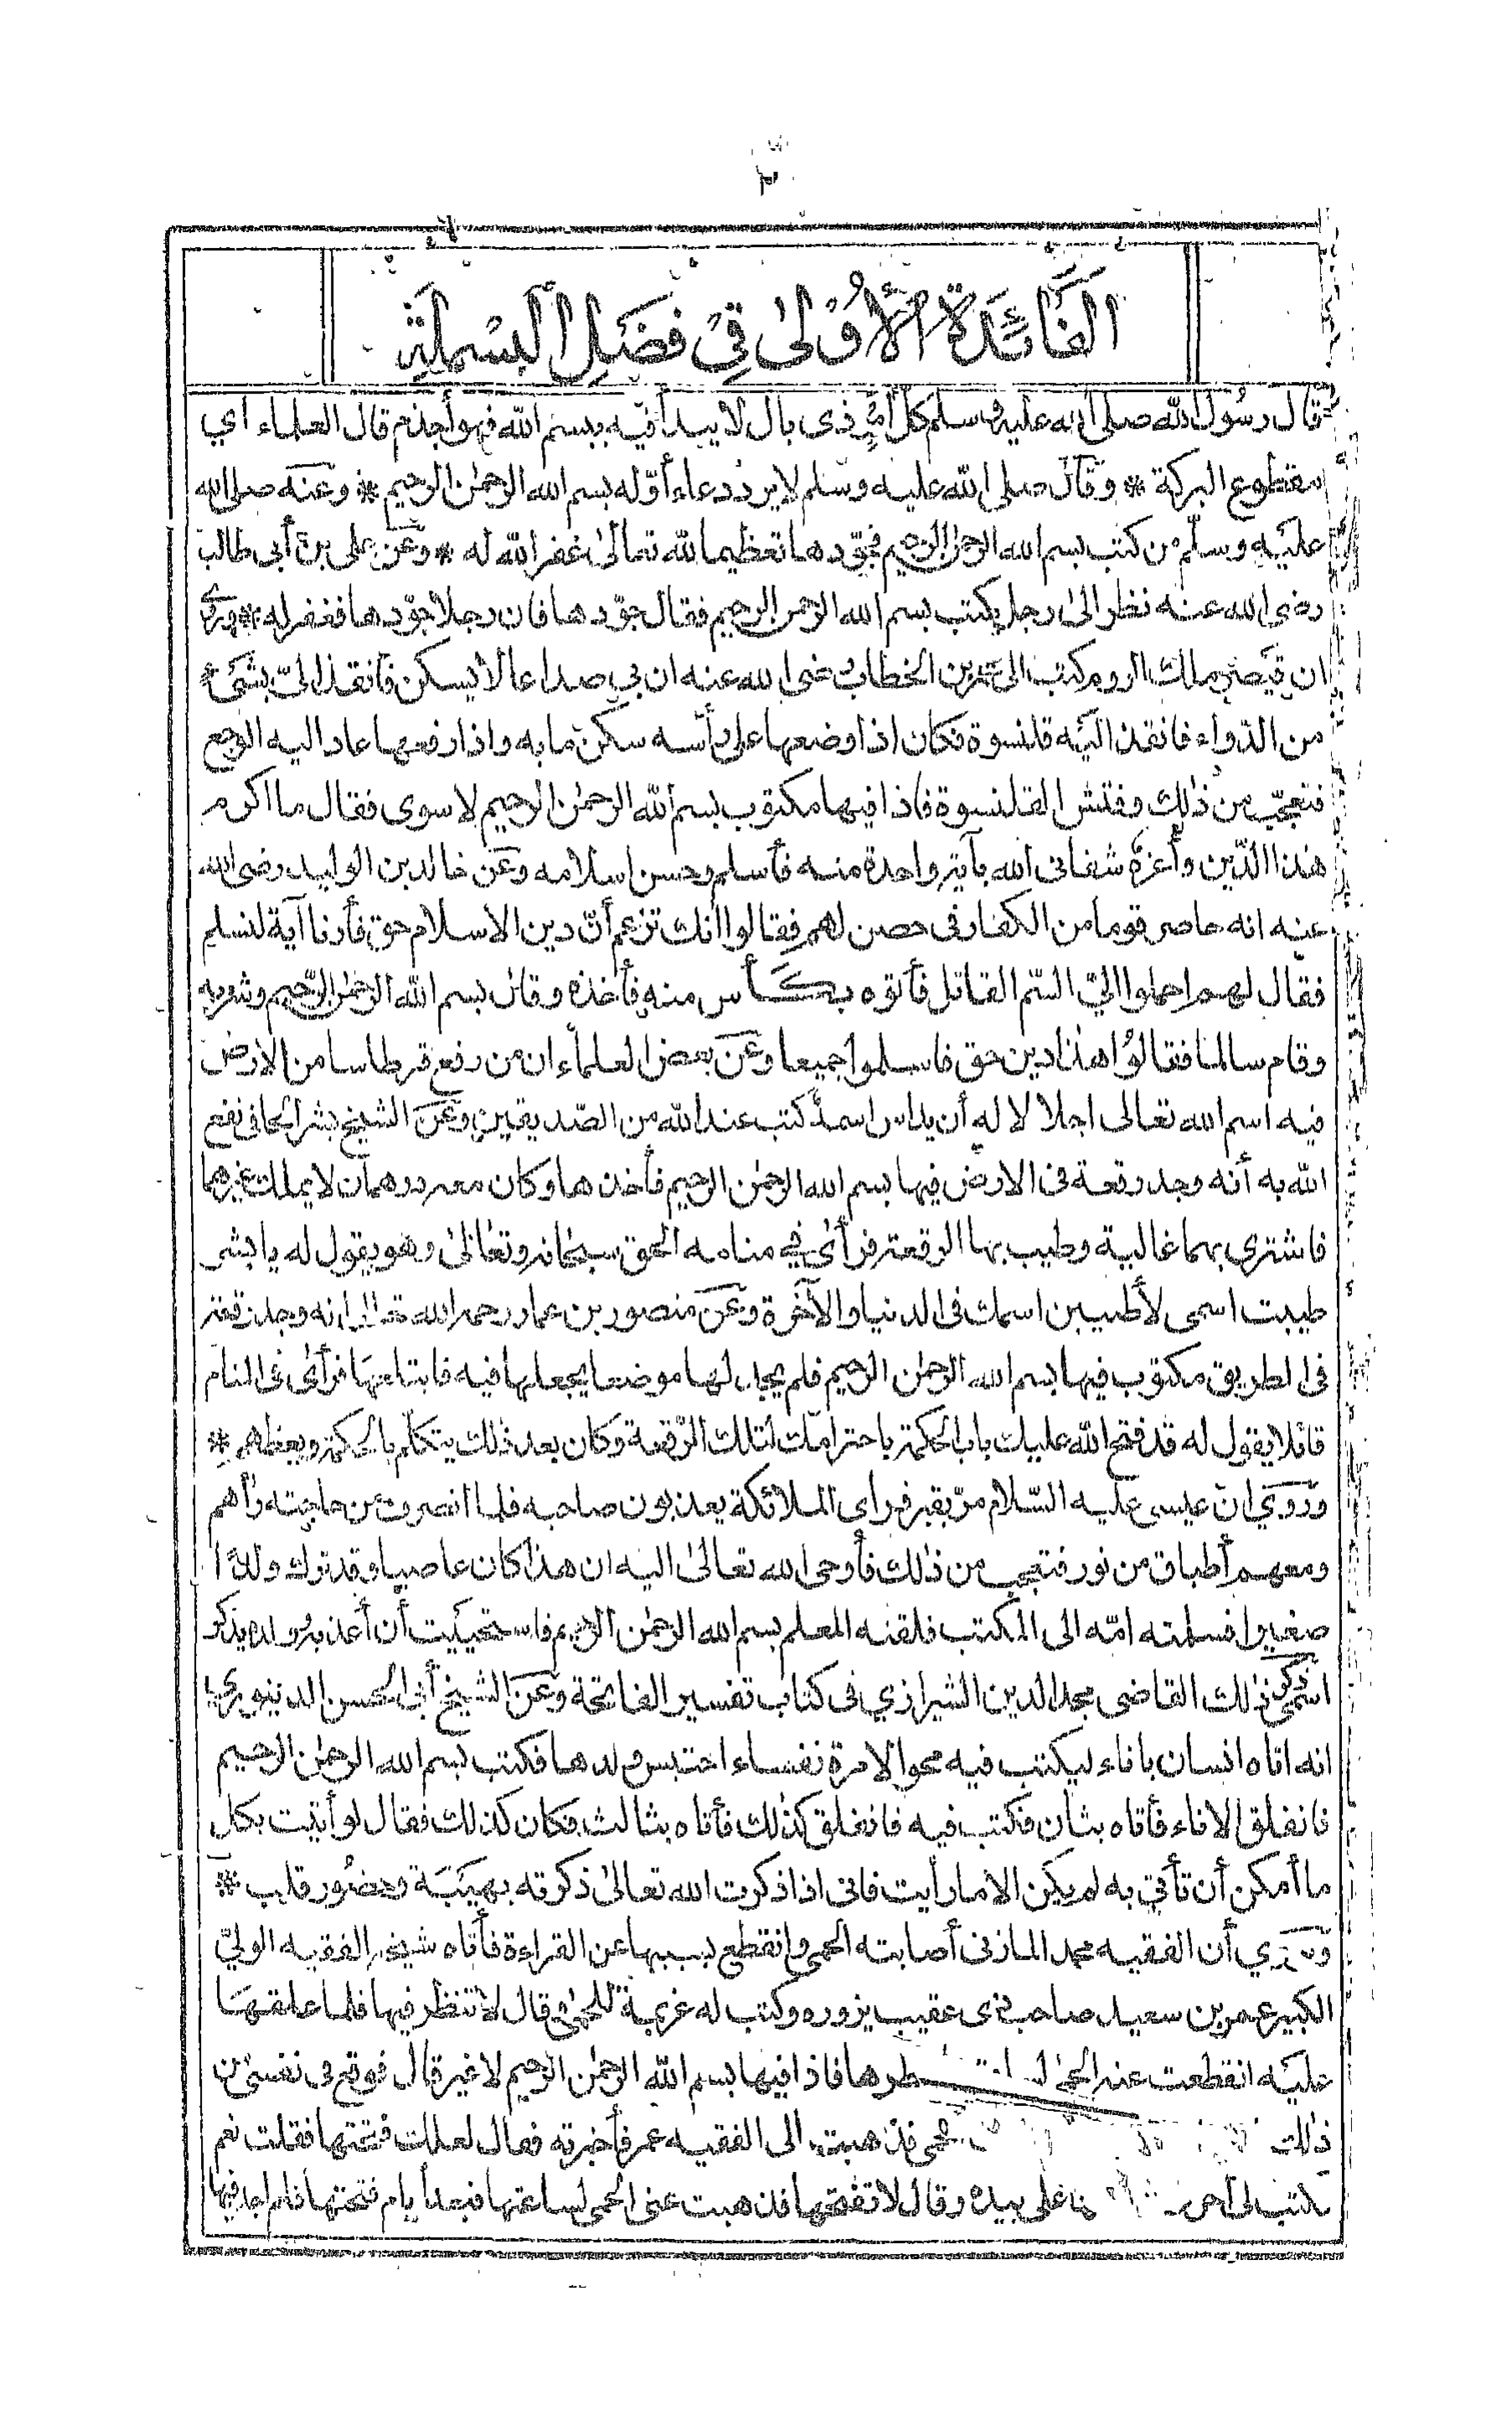 ٣
الفَائدَة الأُوْلىٰ فِيْ فَضَلِ البَسْملَةِ
قال رسُول الله صلى الله عليه وسلم كل أمرٍ ذى بال لا يبدأ فيه ببسم الله فهو أجذم قال العلماء اي
مقطوع البركة * وقال صلى الله عليه وسلم لا يرد دعاء أوّله بسم الله الرحمٰن الرحيم * وعنه صلى الله
عليه وسلّم من كتب بسم الله الرحمٰن الرحيم فجوّدها تعظيما لله تعالىٰ غفر الله له * وعن على بن أبى طالب
رضى الله عنه نظر الىٰ رجل يكتب بسم الله الرحمن الرحيم فقال جوّدها فان رجلا جوّدها فغفر له * وروى
ان قيصر ملك الروم كتب الى عمر بن الخطاب رضى الله عنه ان بي صداعا لا يسكن فأنفذ الىّ بشئ
من الدّواء فانفذ اليه قلنسوة فكان اذا وضعها على رأسه سكن ما به واذا رفعها عاد اليه الوجع
فتعجّب من ذٰلك وفتش القلنسوة فاذا فيها مكتوب بسم الله الرحمٰن الرحيم لا سوى فقال ما اكرم
هٰذا الدّين وأعزه شفانى الله بآية واحدة منه فأسلم وحسن اسلامه وعن خالد بن الوليد رضى الله
عنه انه حاصر قوما من الكفار فى حصن لهم فقالوا انك تزعم أنّ دين الاسلام حق فأرنا آية لنسلم
فقال لهم احملوا اليّ السّم القاتل فأتوه بكأس منه فأخذه وقال بسم الله الرحمٰن الرّحيم وشربه
وقام سالما فقالوُا هٰذا دين حق فاسلموا جميعا وعن بعض العلماء ان من رفع قرطاسا من الارض
فيه اسم الله تعالى اجلالا له أن يداس اسمه كتب عند الله من الصّديقين وعن الشيخ بشر الحافى نفع
الله به أنه وجد رقعة فى الارض فيها بسم الله الرحمٰن الرحيم فأخذها وكان معه درهمان لا يملك غيرهما
فاشترى بهما غالية وطيب بها الرقعة فرأىٰ في منامه الحق سبحانه وتعالىٰ وهو يقول له يا بشر
طيبت اسمى لأطيبن اسمك فى الدنيا والآخرة وعن منصور بن عمار رحمه الله تعالى انه وجد رقعة
فى الطريق مكتوب فيها بسم الله الرحمٰن الرحيم فلم يجد لها موضعا يجعلها فيه فابتلعهَا فرأىٰ فى المنام
قائلا يقول له قد فتح الله عليك باب الحكمة باحترامك لتلك الرّقعة وكان بعد ذٰلك يتكلّم بالحكمة ويعظهم *
وروي ان عيسى عليه السّلام مرّ بقبر فراى الملائكة يعذبون صاحبه فلما انصرف من حاجته رأهم
ومعهم أطباق من نور فتعجب من ذٰلك فأوحى الله تعالىٰ اليه ان هذا كان عاصيا وقد ترك ولدًا
صغيرا فسلمته امّه الى المكتب فلقنه المعلم بسم الله الرحمٰن الرحيم فاستحييت أن أعذبه وولده يذكر
اسمى ذكر ذٰلك القاضى مجد الدين الشيرازي فى كتاب تفسير الفاتحة وعن الشيخ أبى الحسن الدينوري
انه اتاه انسان باناء ليكتب فيه محوا لامرة نفساء احتبس ولدها فكتب بسم الله الرحمٰن الرحيم
فانفلق الاناء فأتاه بثان فكتب فيه فانفلق كذٰلك فأتاه بثالث فكان كذلك فقال لو أتيت بكل
ما أمكن أن تأتي به لم يكن الا ما رأيت فانى اذا ذكرت الله تعالىٰ ذكرته بهيبَة وحضُور قلب *
وروي أن الفقيه محمد المازنى أصابته الحمى وانقطع بسببها عن القراءة فأتاه شيخه الفقيه الوليّ
الكبير عمر بن سعيد صاحب ذى عقيب يزوره وكتب له عزيمة للحمىٰ وقال لا تنظر فيها فلما علقهَا
عليه انقطعت عنه الحمىٰ فاذا فيها بسم الله الرحمٰن الرحيم لا غير قال فوقع فى نفسى من
ذٰلك فذهبت الى الفقيه عمر فأخبرته فقال لعلك فتحتها فقلت نعم
فكتب لى على بيده وقال لا تفتحها فذهبت عنى الحمى لساعتها فبعد أيام فتحتها فلم اجد فيها